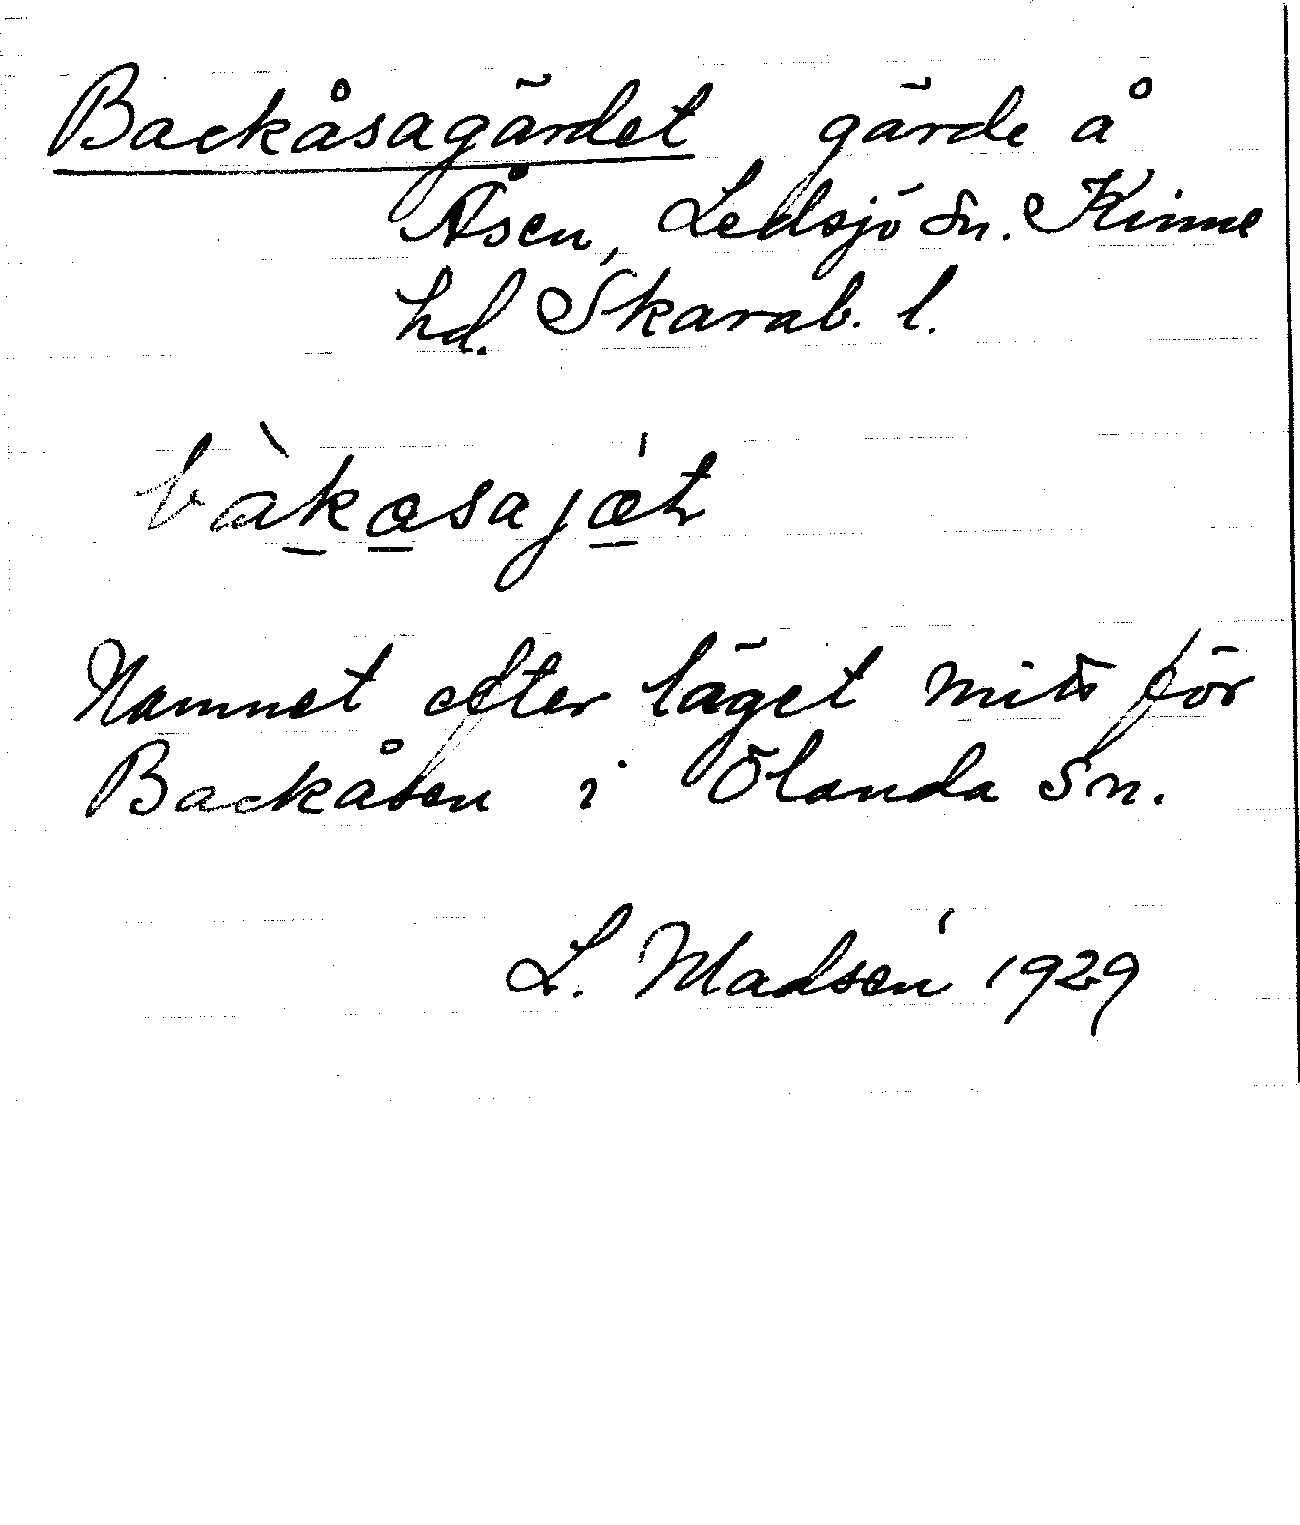 Backåsagärdet gärde å
Åsen, Ledsjö Sn. Kinne
hd. Skarab. l.
bàkasajǽt
Namnet efter läget mitt för
Backåsen i Ölanda Sn.
L. Madsén 1929